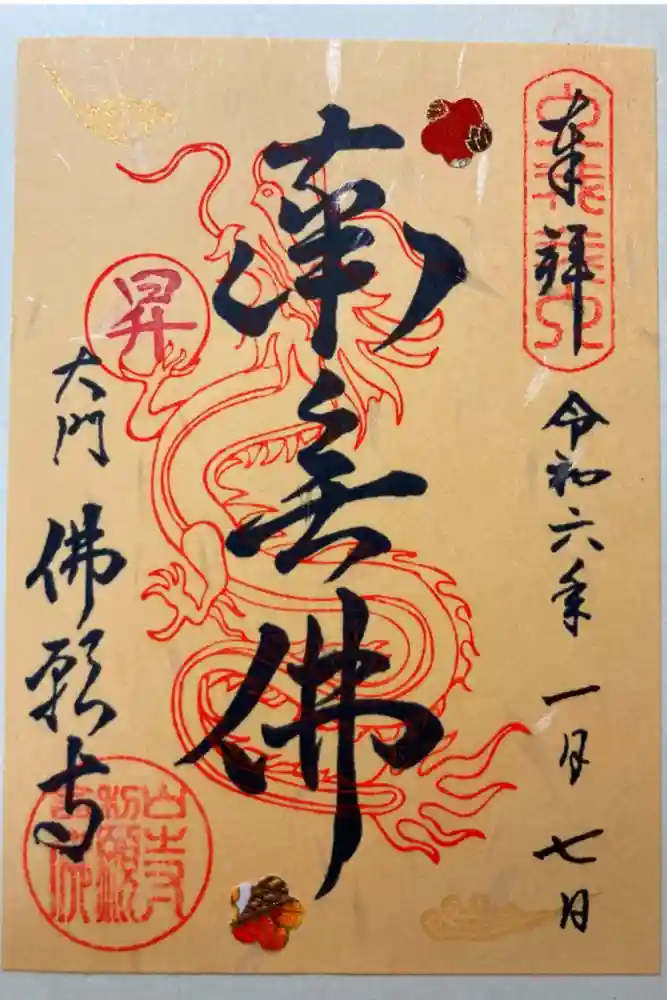 奉拝
令和六年 一月 七日
南無佛
昇
大門 佛願寺